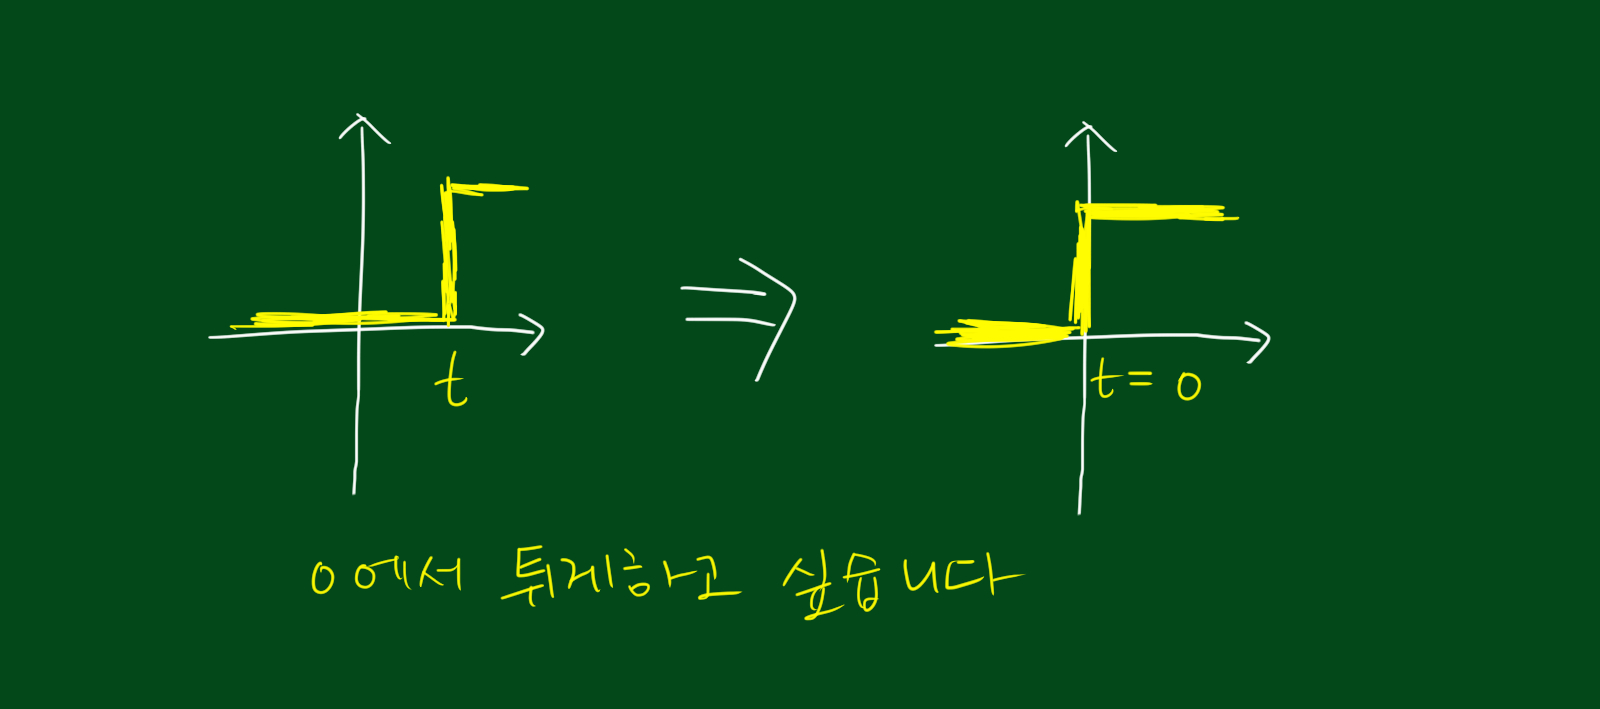 t
t = 0
0에서 튀게하고 싶습니다